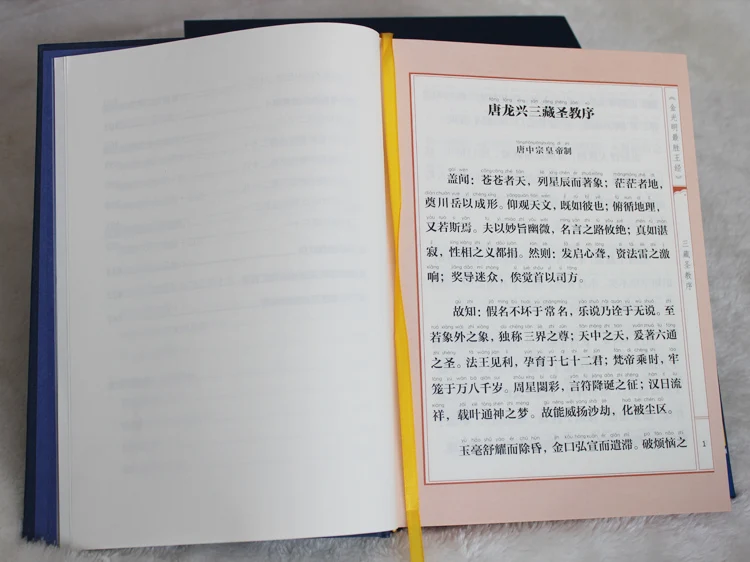 唐龙兴三藏圣教序
唐中宗皇帝制
盖闻：苍苍者天，列星辰而著象；茫茫者地，
奠川岳以成形。仰观天文，既如彼也；俯循地理，
又若斯焉。夫以妙旨幽微，名言之路攸绝；真如湛
寂，性相之义都捐。然则：发启心聋，资法雷之激
响；奖导迷众，俟觉首以司方。
故知：假名不坏于常名，乐说乃诠于无说。至
若象外之象，独称三界之尊；天中之天，爰著六通
之圣。法王见利，孕育于七十二君；梵帝乘时，牢
笼于万八千岁。周星閟彩，言符降诞之征；汉日流
祥，载叶通神之梦。故能威扬沙劫，化被尘区。
玉毫舒耀而除昏，金口弘宣而遣滞。破烦恼之
《金光明最胜王经》
三藏圣教序
1